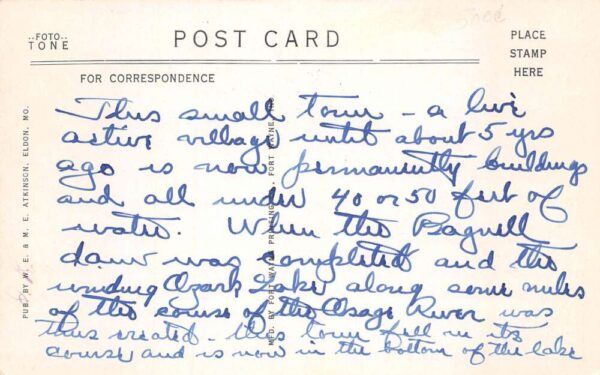 ..FOTO..
TONE
POST CARD
PLACE
STAMP
HERE
FOR CORRESPONDENCE
This small town - a live
active village until about 5 yrs
ago is now permanently buildings
and all under 40 or 50 feet of
water. When the Bagnell
dam was completed and the
winding Ozark Lake along some miles
of the course of the Osage River was
thus created - this town fell in its
course and is now in the bottom of the lake
PUB. BY W. E. & M. E. ATKINSON, ELDON, MO.
MFD. BY FORT WAYNE PRINTING CO., FORT WAYNE, IND.